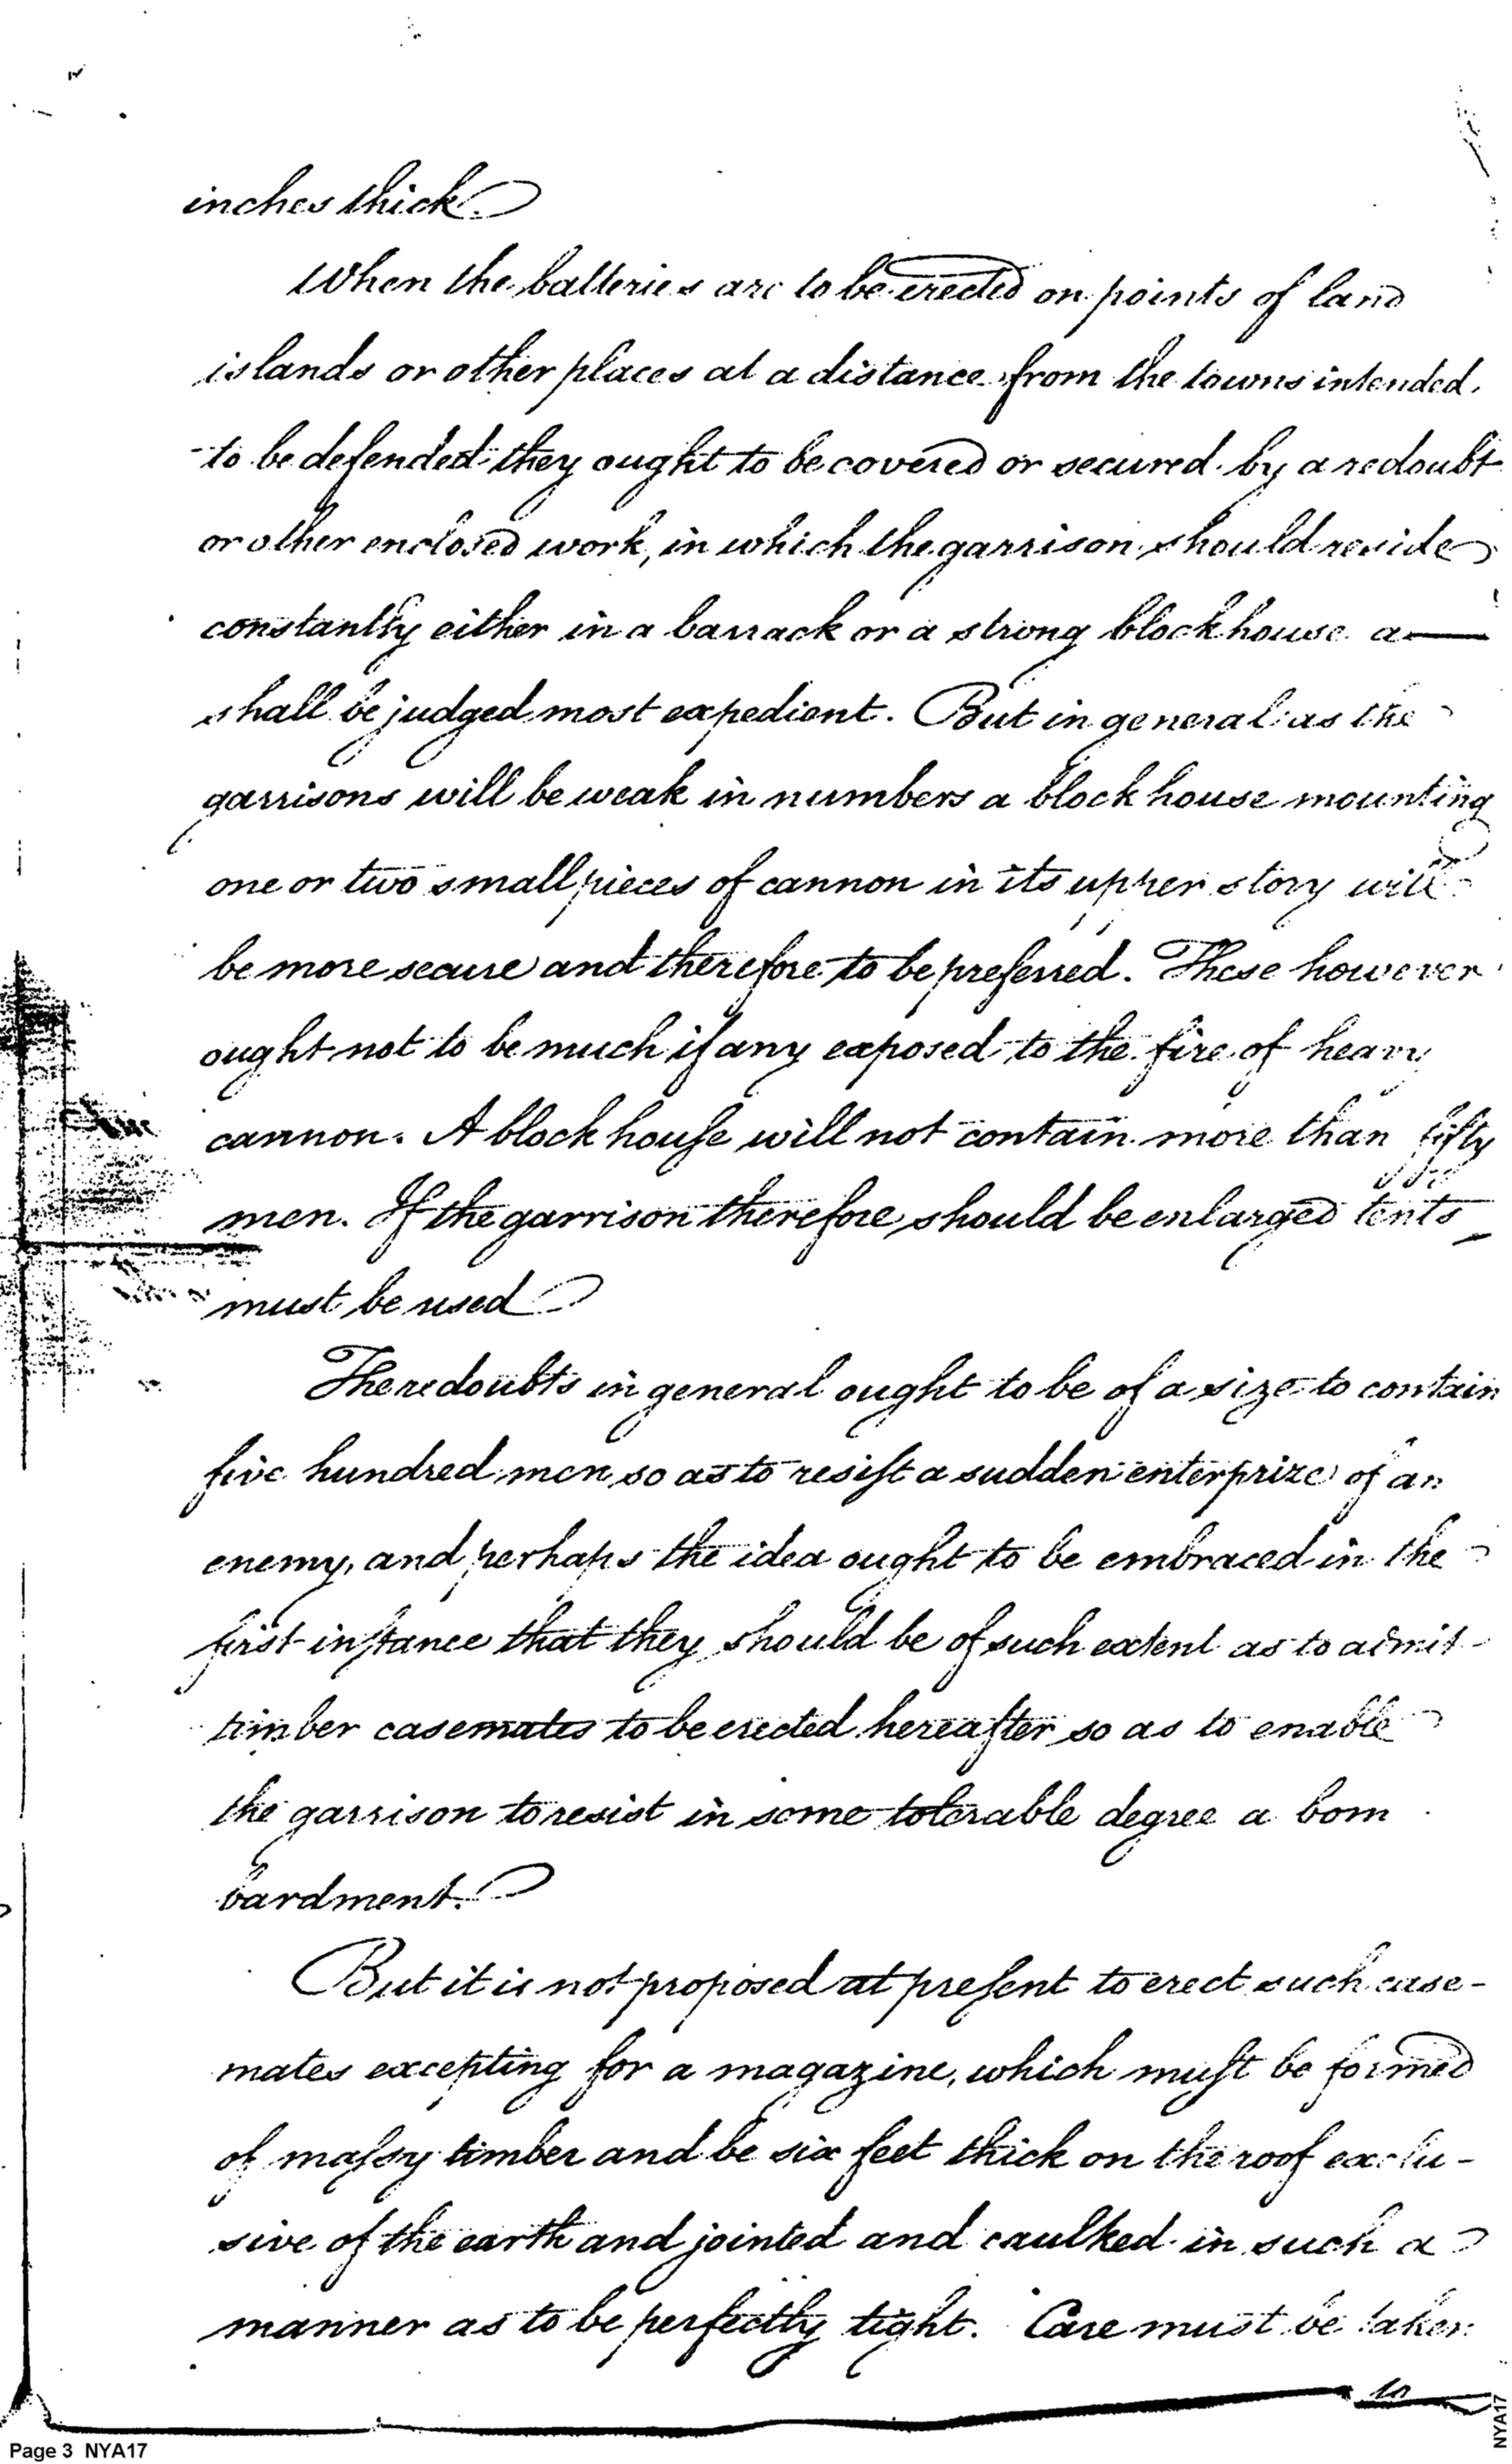 inches thick.
When the batteries are to be erected on points of land
islands or other places at a distance from the towns intended
to be defended they ought to be covered or secured by a redoubt
or other enclosed work, in which the garrison should reside
constantly either in a barrack or a strong block house as
shall be judged most expedient. But in general as the
garrisons will be weak in numbers a block house mounting
one or two small pieces of cannon in its upper story will
be more secure and therefore to be preferred. These however
ought not to be much if any exposed to the fire of heavy
cannon. A block house will not contain more than fifty
men. If the garrison therefore should be enlarged tents
must be used
The redoubts in general ought to be of a size to contain
five hundred men so as to resist a sudden enterprize of an
enemy, and perhaps the idea ought to be embraced in the
first instance that they should be of such extent as to admit
timber casemates to be erected hereafter so as to enable
the garrison to resist in some tolerable degree a bom
bardment.
But it is not proposed at present to erect such case-
mates excepting for a magazine, which must be formed
of massy timber and be six feet thick on the roof exclu-
sive of the earth and jointed and caulked in such a
manner as to be perfectly tight. Care must be taken
to
Page 3 NYA17
NYA17